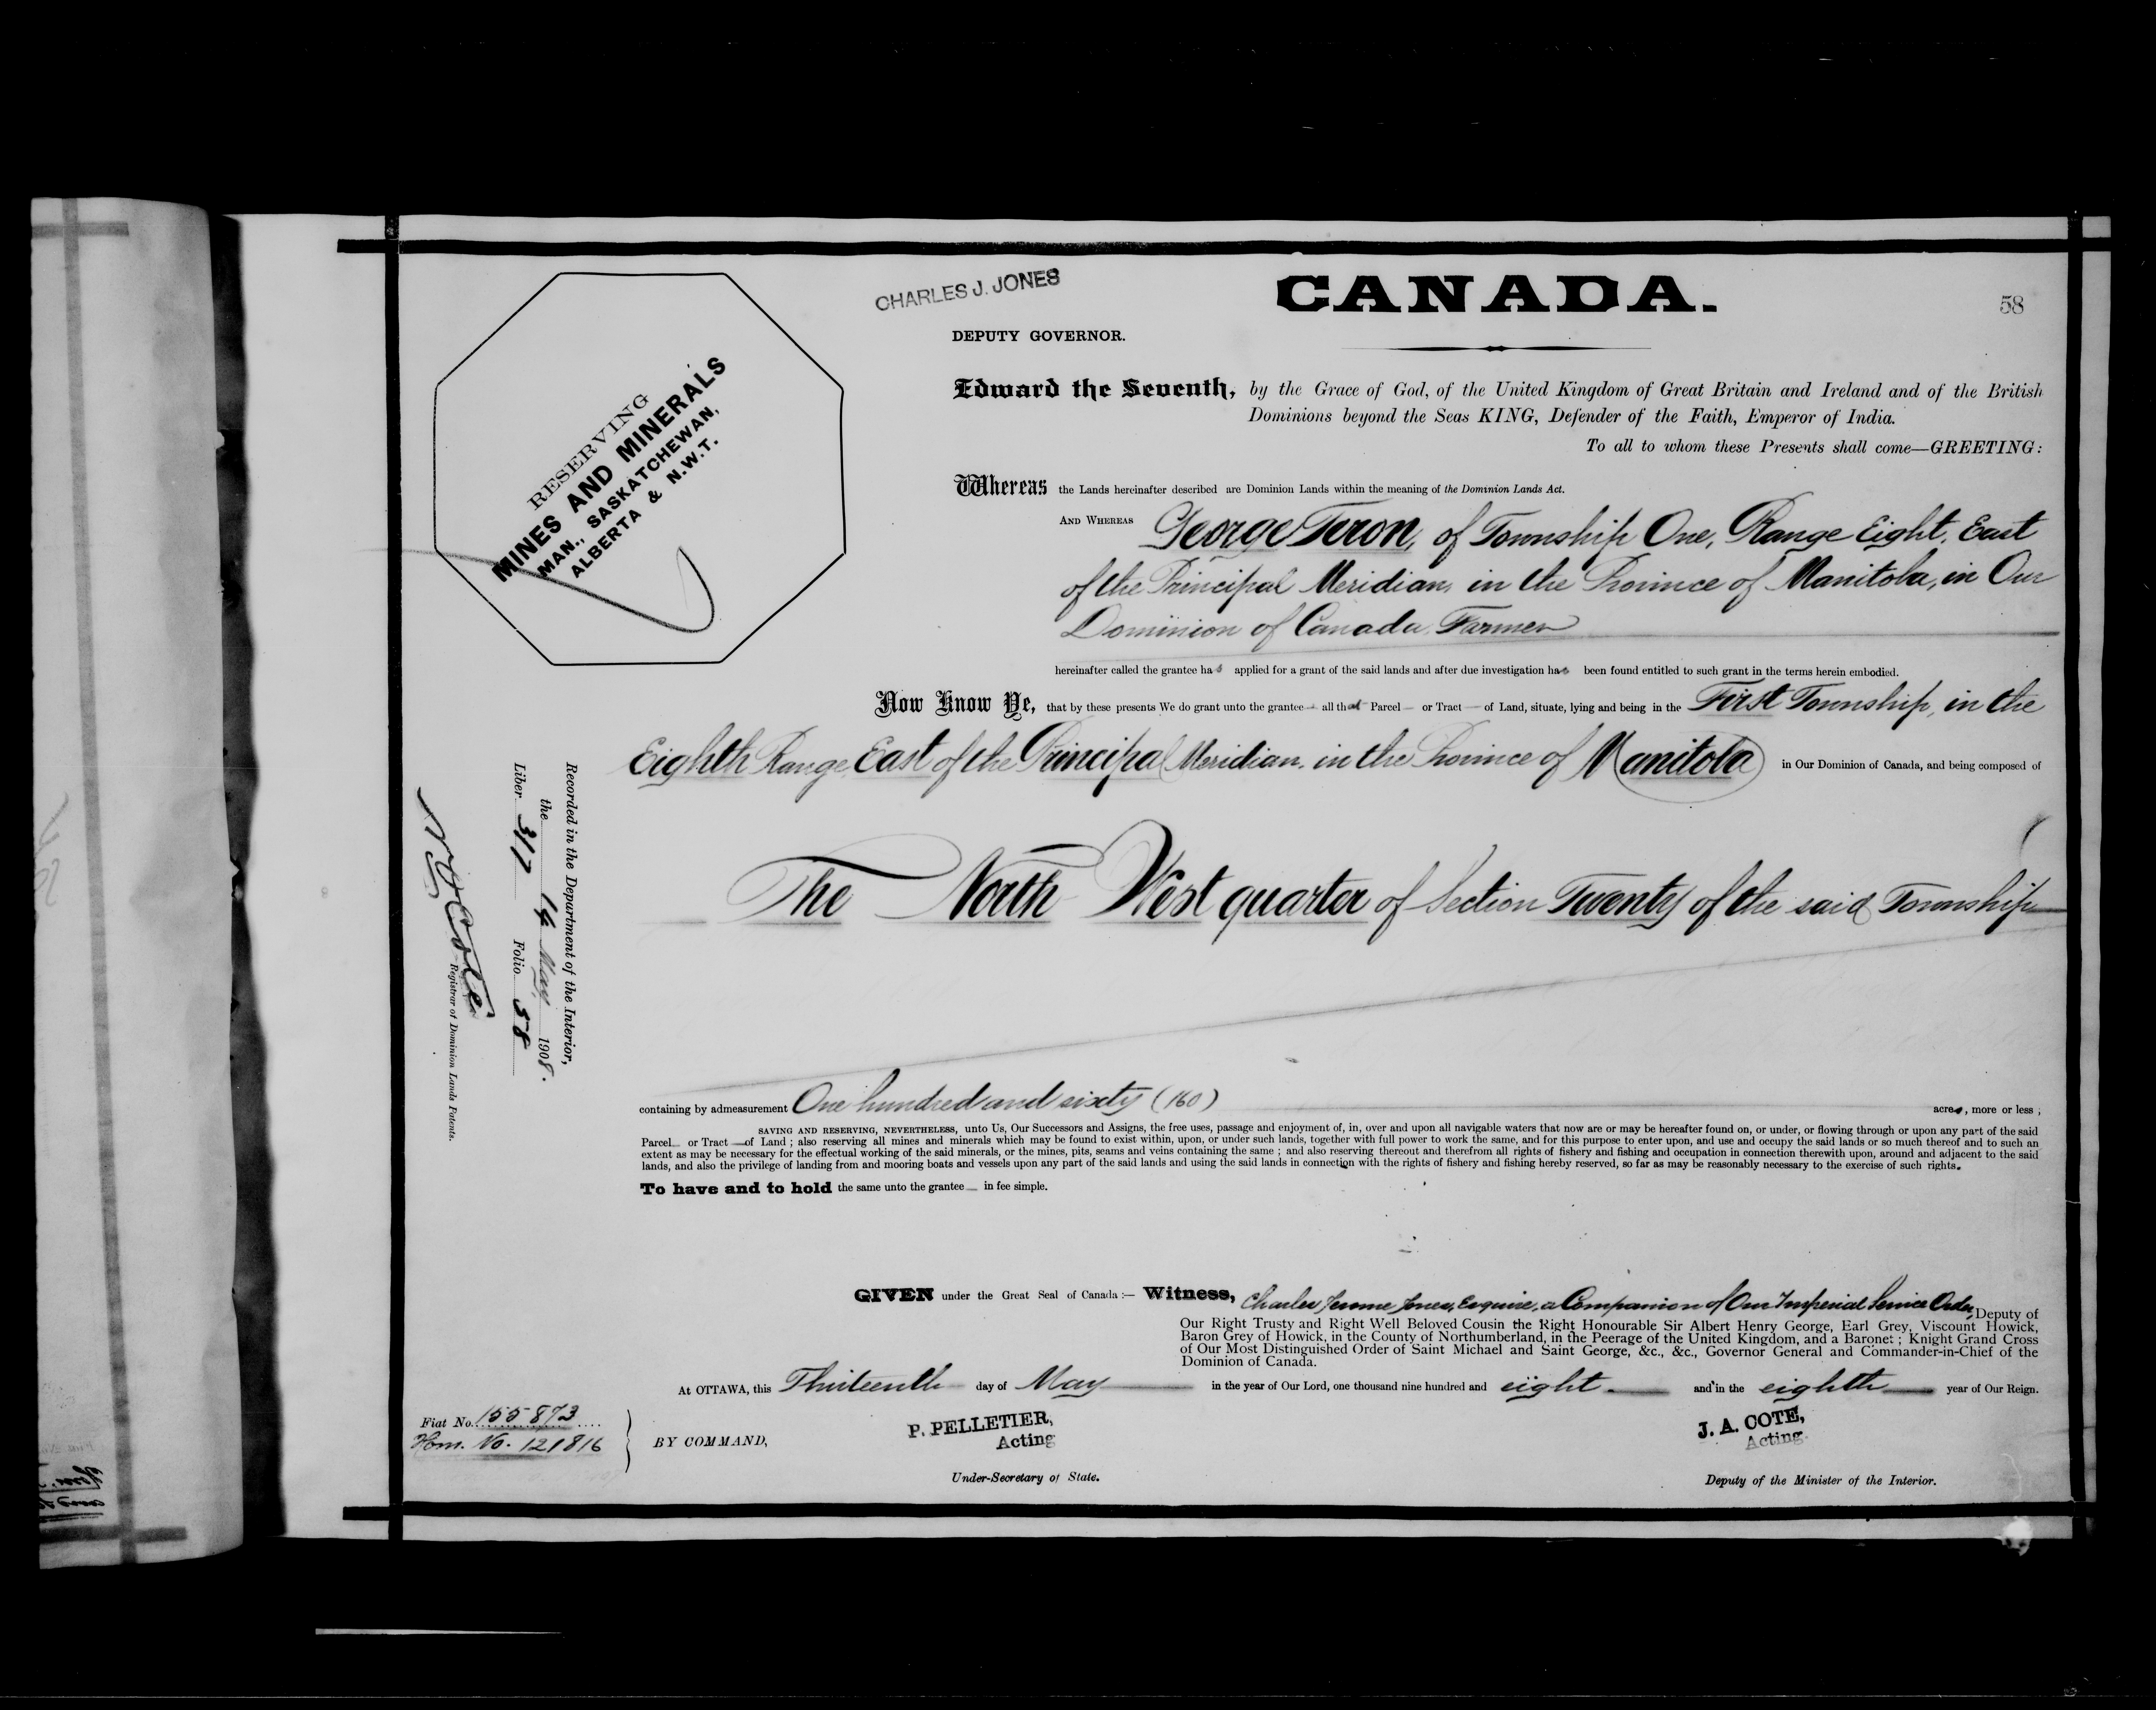 CHARLES J. JONES
CANADA.
58
DEPUTY GOVERNOR.
RESERVING
MINES AND MINERALS
MAN., SASKATCHEWAN,
ALBERTA & N.W.T.
Edward the Seventh, by the Grace of God, of the United Kingdom of Great Britain and Ireland and of the British
Dominions beyond the Seas KING, Defender of the Faith, Emperor of India.
To all to whom these Presents shall come—GREETING:
Whereas the Lands hereinafter described are Dominion Lands within the meaning of the Dominion Lands Act.
AND WHEREAS George Teron, of Township One, Range Eight, East
of the Principal Meridian, in the Province of Manitoba, in Our
Dominion of Canada, Farmer
hereinafter called the grantee has applied for a grant of the said lands and after due investigation has been found entitled to such grant in the terms herein embodied.
Now Know Ye, that by these presents We do grant unto the grantee all that Parcel or Tract of Land, situate, lying and being in the First Township, in the
Eighth Range, East of the Principal Meridian, in the Province of Manitoba in Our Dominion of Canada, and being composed of
The North West quarter of Section Twenty of the said Township
containing by admeasurement One hundred and sixty (160) acres, more or less ;
SAVING AND RESERVING, NEVERTHELESS, unto Us, Our Successors and Assigns, the free uses, passage and enjoyment of, in, over and upon all navigable waters that now are or may be hereafter found on, or under, or flowing through or upon any part of the said
Parcel or Tract of Land ; also reserving all mines and minerals which may be found to exist within, upon, or under such lands, together with full power to work the same, and for this purpose to enter upon, and use and occupy the said lands or so much thereof and to such an
extent as may be necessary for the effectual working of the said minerals, or the mines, pits, seams and veins containing the same ; and also reserving thereout and therefrom all rights of fishery and fishing and occupation in connection therewith upon, around and adjacent to the said
lands, and also the privilege of landing from and mooring boats and vessels upon any part of the said lands and using the said lands in connection with the rights of fishery and fishing hereby reserved, so far as may be reasonably necessary to the exercise of such rights.
To have and to hold the same unto the grantee in fee simple.
Recorded in the Department of the Interior,
the 14 May 1908.
Liber 317 Folio 58
N.O. Coté
Registrar of Dominion Lands Patents.
GIVEN under the Great Seal of Canada :— Witness, Charles Jerome Jones, Esquire, a Companion of Our Imperial Service Order, Deputy of
Our Right Trusty and Right Well Beloved Cousin the Right Honourable Sir Albert Henry George, Earl Grey, Viscount Howick,
Baron Grey of Howick, in the County of Northumberland, in the Peerage of the United Kingdom, and a Baronet ; Knight Grand Cross
of Our Most Distinguished Order of Saint Michael and Saint George, &c., &c., Governor General and Commander-in-Chief of the
Dominion of Canada.
At OTTAWA, this Thirteenth day of May in the year of Our Lord, one thousand nine hundred and eight and in the eighth year of Our Reign.
Fiat No. 155873
Hom. No. 121816
BY COMMAND,
P. PELLETIER,
Acting
Under-Secretary of State.
J. A. COTE,
Acting.
Deputy of the Minister of the Interior.